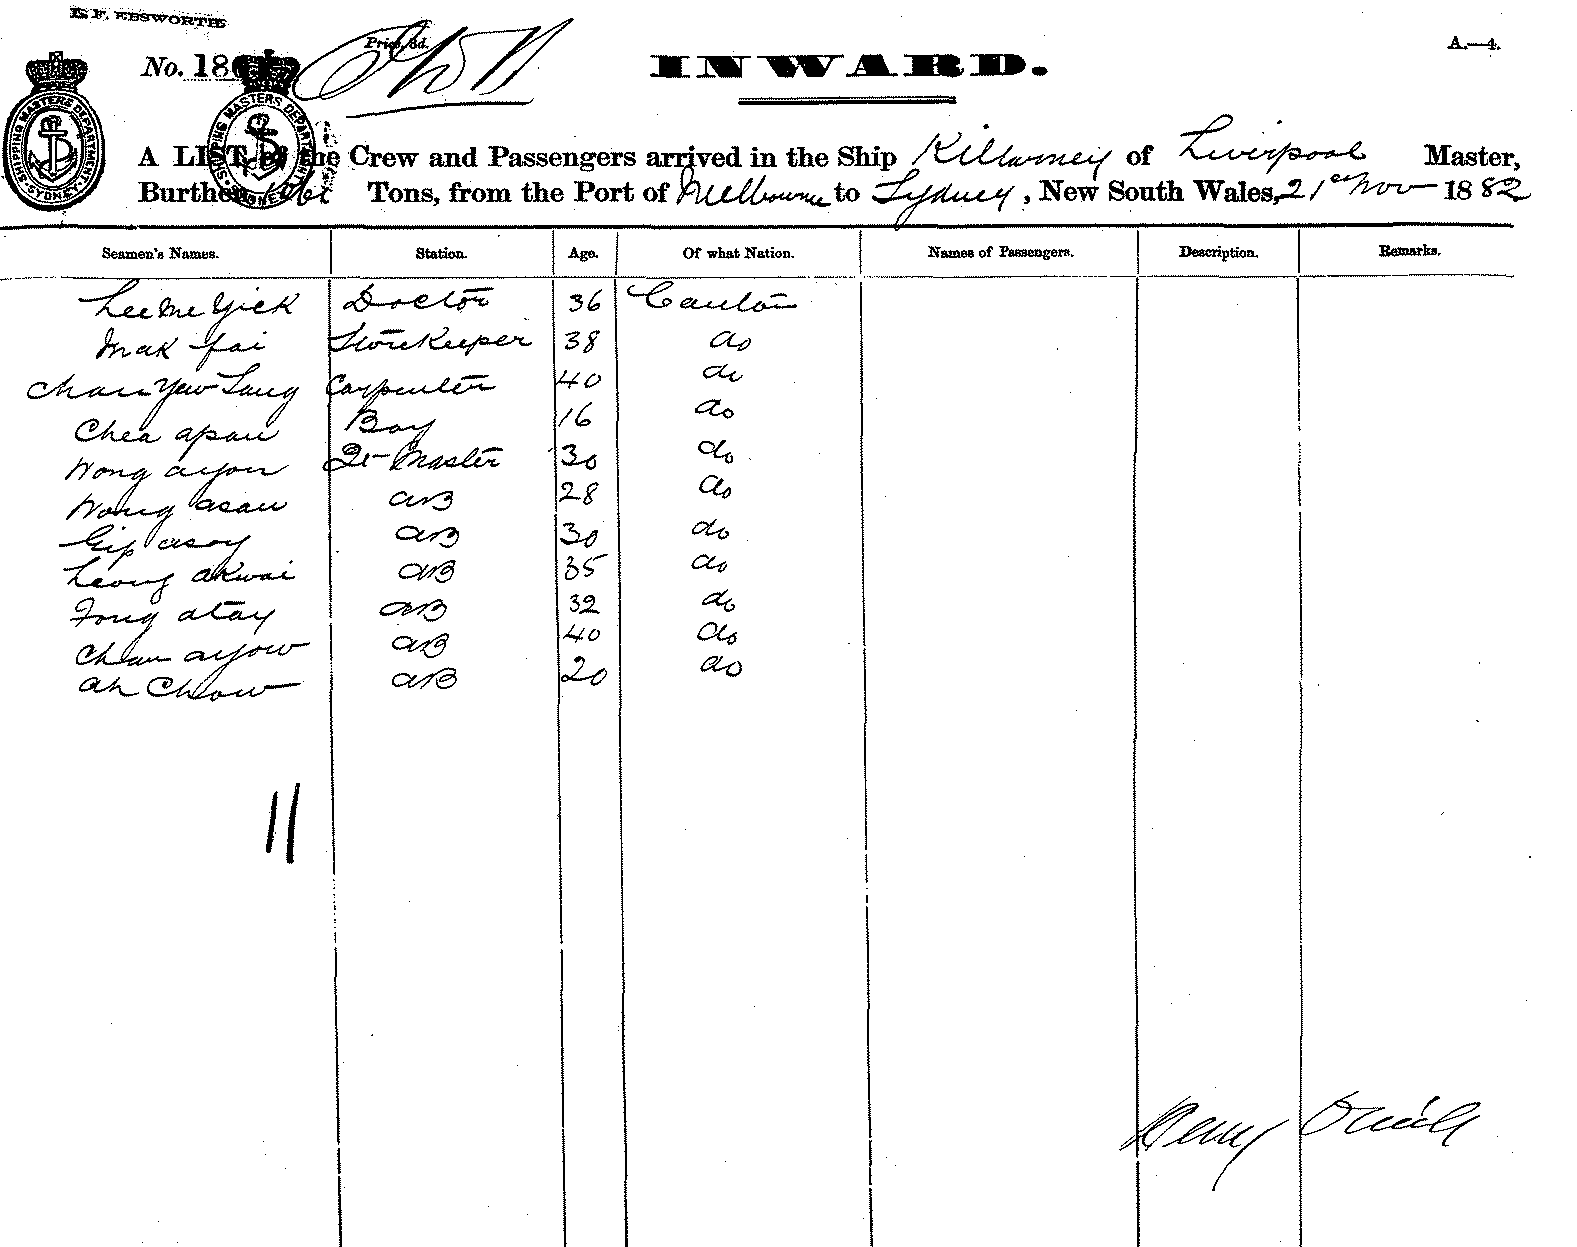 E. F. EBSWORTH
A.—4.
Price, 3d.
No. 18
INWARD.
SHIPPING MASTERS DEPARTMENT SYDNEY
SHIPPING MASTERS DEPARTMENT SYDNEY
A LIST of the Crew and Passengers arrived in the Ship Killarney of Liverpool Master,
Burthen 1061 Tons, from the Port of Melbourne to Sydney, New South Wales, 21st Nov 1882
Seamen's Names. Station. Age. Of what Nation. Names of Passengers. Description. Remarks.
Lee Me Yick Doctor 36 Canton
Mak fai Storekeeper 38 do
Chan Yew Tang Carpenter 40 do
Chea apan Boy 16 do
Wong ayon Qr Master 30 do
Wong asau AB 28 do
Gip asoy AB 30 do
Leong akwai AB 35 do
Fong atay AB 32 do
Chan ayow AB 40 do
Ah Chow AB 20 do
11
Henry O'Neill